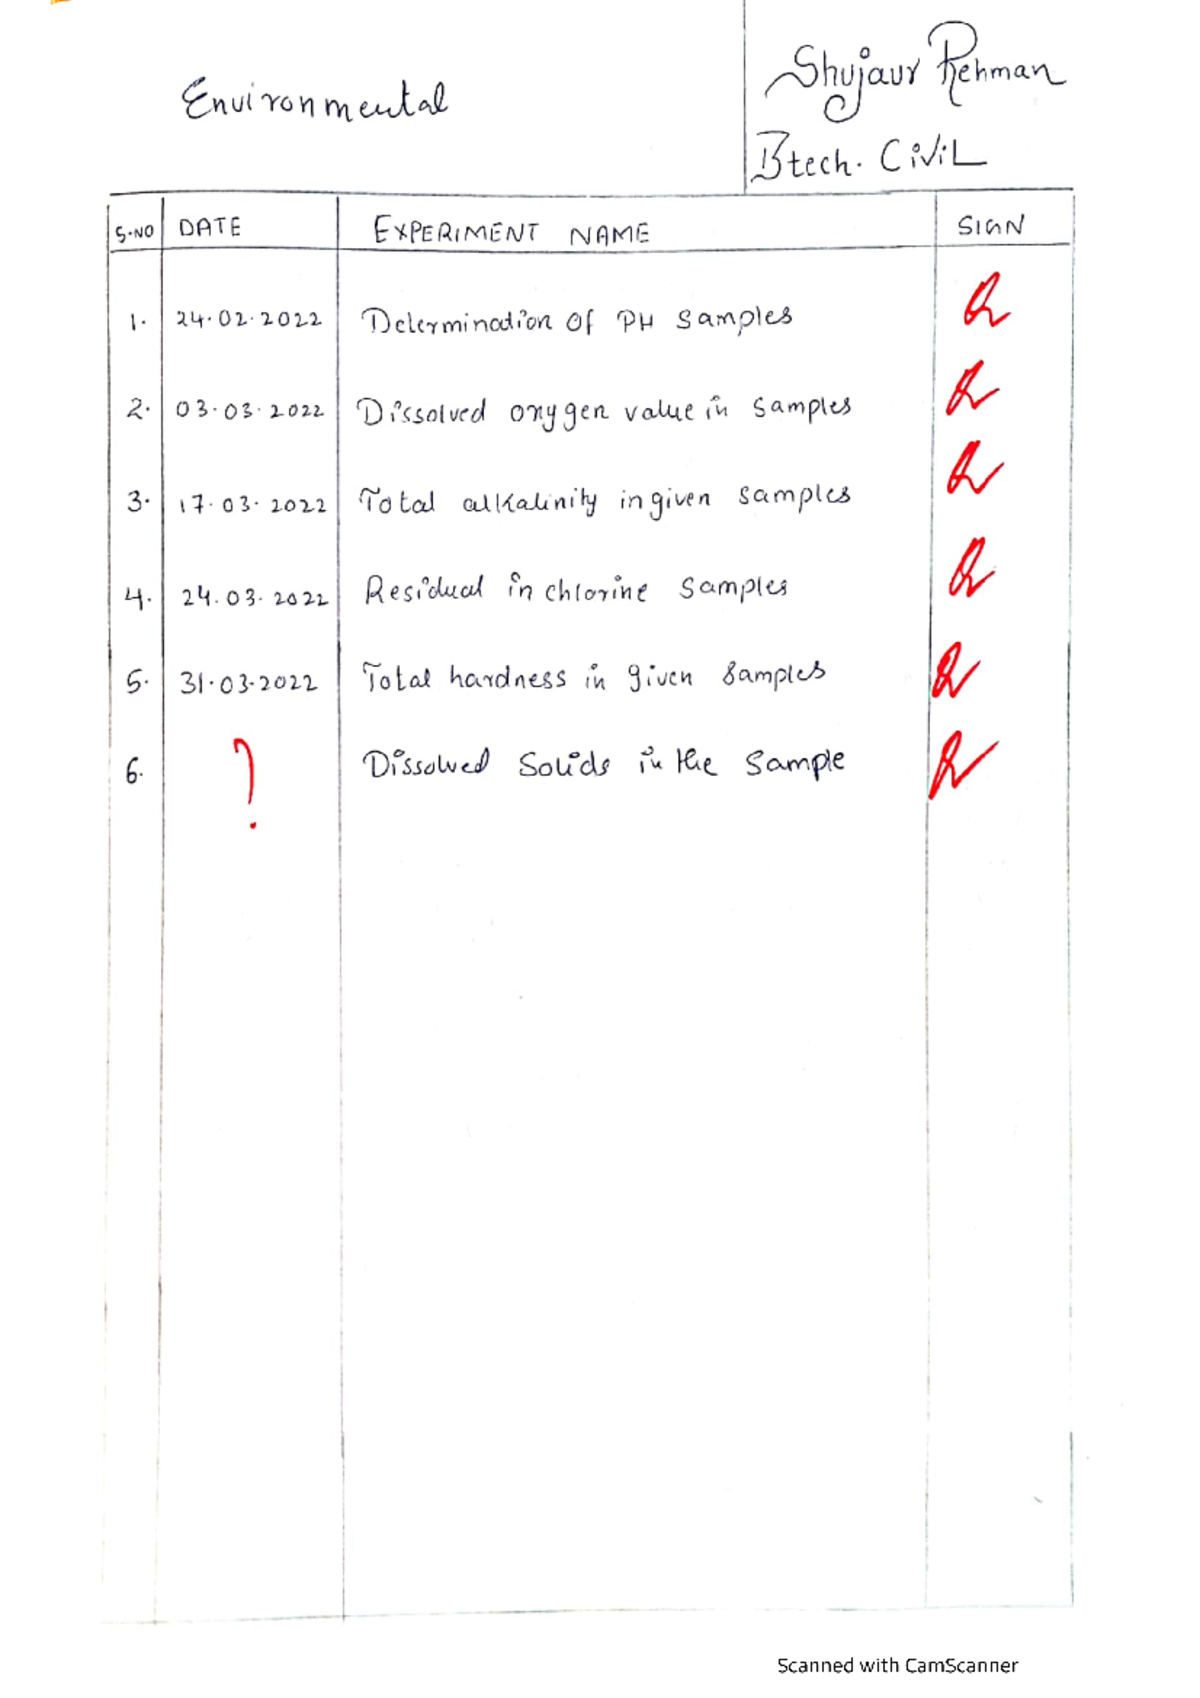 Environmental
Shujaur Rehman
Btech. CiviL
S.NO DATE EXPERIMENT NAME SIGN
1. 24.02.2022 Determination Of PH Samples
2. 03.03.2022 Dissolved oxygen value in Samples
3. 17.03.2022 Total alkalinity in given Samples
4. 24.03.2022 Residual in chlorine Samples
5. 31.03.2022 Total hardness in given Samples
6. ? Dissolved Solids in the Sample
Scanned with CamScanner